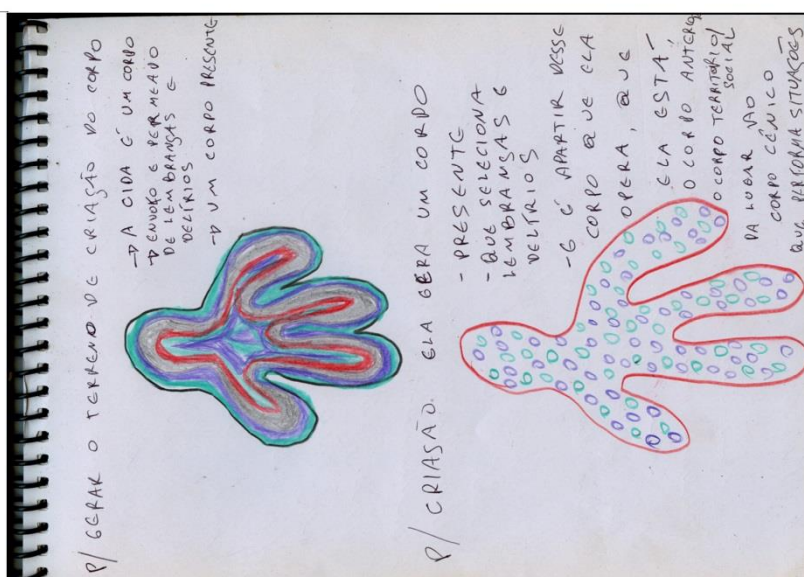 P/ GERAR O TERRENO DE CRIAÇÃO DO CORPO
→ A CIDA É UM CORPO
→ ENVOLTO E PERMEADO
DE LEMBRANÇAS E
DELÍRIOS
→ UM CORPO PRESENTE
P/ CRIASÃO. ELA GERA UM CORPO
- PRESENTE
- QUE SELECIONA
LEMBRANÇAS E
DELÍRIOS
- E É APARTIR DESSE
CORPO QUE ELA
OPERA, QUE
ELA ESTÁ -
O CORPO ANTERIOR
O CORPO TERRITÓRIO/
SOCIAL
DA LUGAR AO
CORPO CÊNICO
QUE PERFORMA SITUAÇÕES